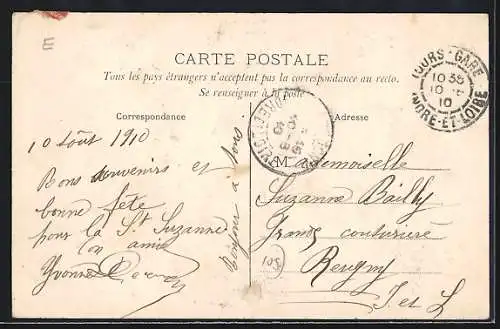 E
CARTE POSTALE
Tous les pays étrangers n'acceptent pas la correspondance au recto.
Se renseigner à la poste
Correspondance
Adresse
TOURS-GARE
10 35
10 - 8
10
INDRE-ET-LOIRE
10 Août 1910
Bons souvenirs et
bonne fête
pour la St Suzanne
ton amie
Yvonne
Bonjour à tous
Mademoiselle
Suzanne Bailly
Grande couturière
Reugny
I. et L
501